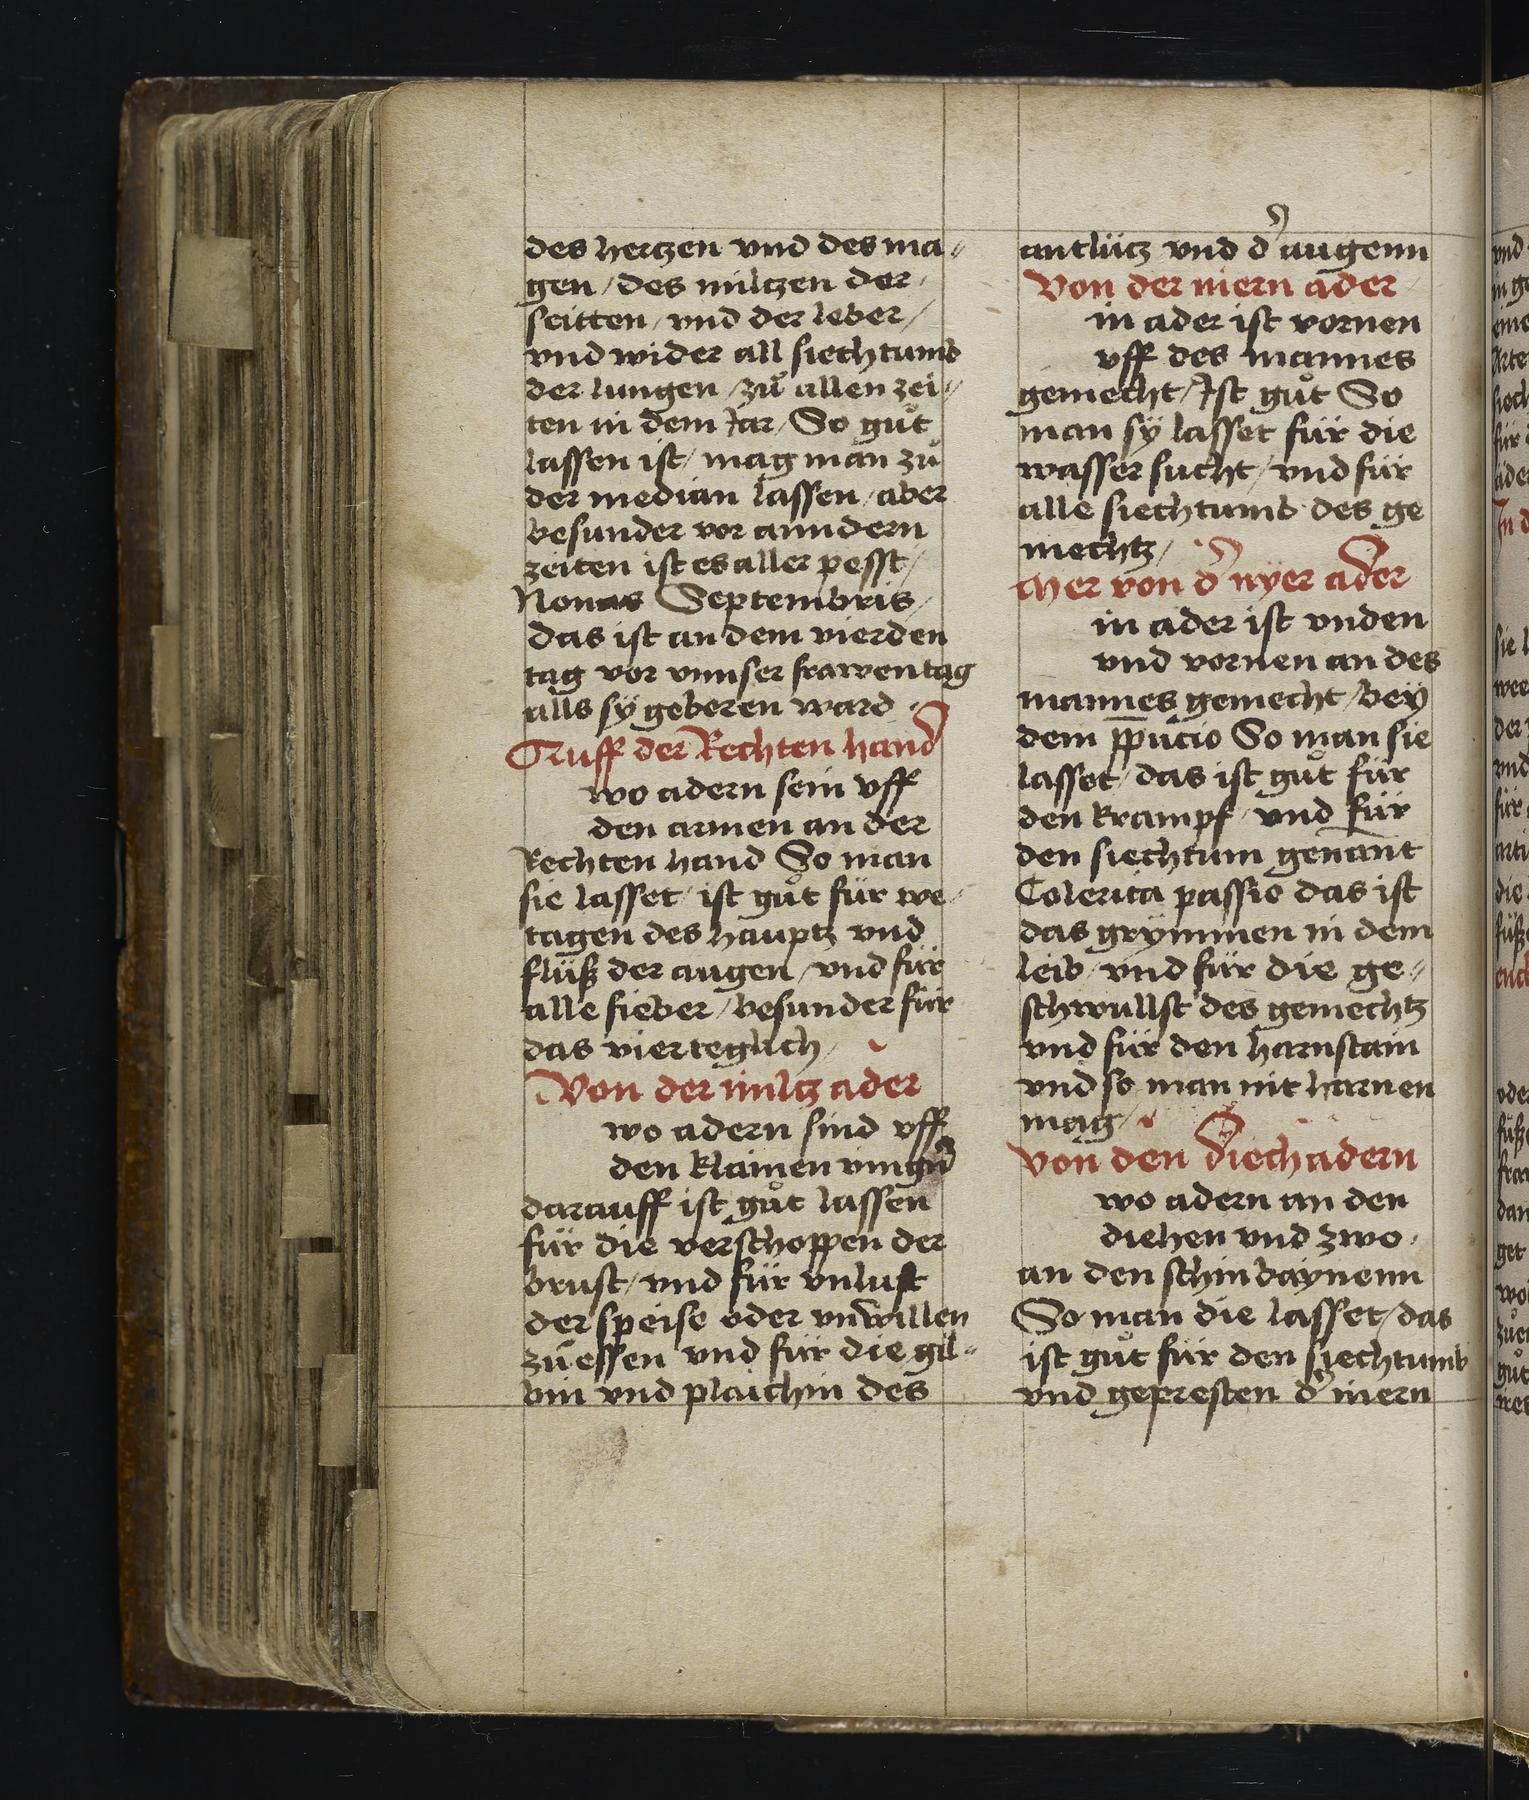 des hertzen vnd des ma⸗
gen / des miltzen der /
seitten / vnd der leber /
vnd wider all siechtumb
der lungen / zů allen zei⸗
ten in dem Jar / So gůt
lassen ist / mag man zů
der median lassen / aber
besunder vor anndern
zeiten ist es aller pesst /
Nonas Septembris /
das ist an dem vierden
tag vor vnnser frawen tag
alls sÿ geboren ward
Auff der Rechten hand
wo adern sein vff
den armen an der
Rechten hand So man
sie lasset / ist gůt für we⸗
tagen des hauptz vnd
flüß der augen / vnd für
alle fieber / besunder für
das vierteglich /
Von der miltz ader
wo adern sind vff
den klainen vingn̄
darauff ist gůt lassen
für die verschoppen der
brust / vnd für vnlust
der speise oder vnwillen
zu essen vnd für die gil⸗
bin vnd plaichin des
antlütz vnd d' augenn
Von der niern ader
in ader ist vornen
vff des mannes
gemecht / Jst gůt So
man sÿ lasset für die
wassersucht / vnd für
alle siechtumb des ge
mechtz /
Mer von d' nyer ader
in ader ist vnden
vnd vornen an des
mannes gemecht / beÿ
dem p̄pucio So man sie
lasset / das ist gůt für
den krampf / vnd für
den siechtum genant
Colerica passio das ist
das grÿmmen in dem
leib / vnd für die ge⸗
schwullst des gemechtz
vnd für den harnstain
vnd so man nit harnen
mag /
von den diechadern
wo adern an den
diehen vnd zwo
an den schinbaynenn
So man die lasset / das
ist gůt für den siechtumb
vnd gepresten d' niern